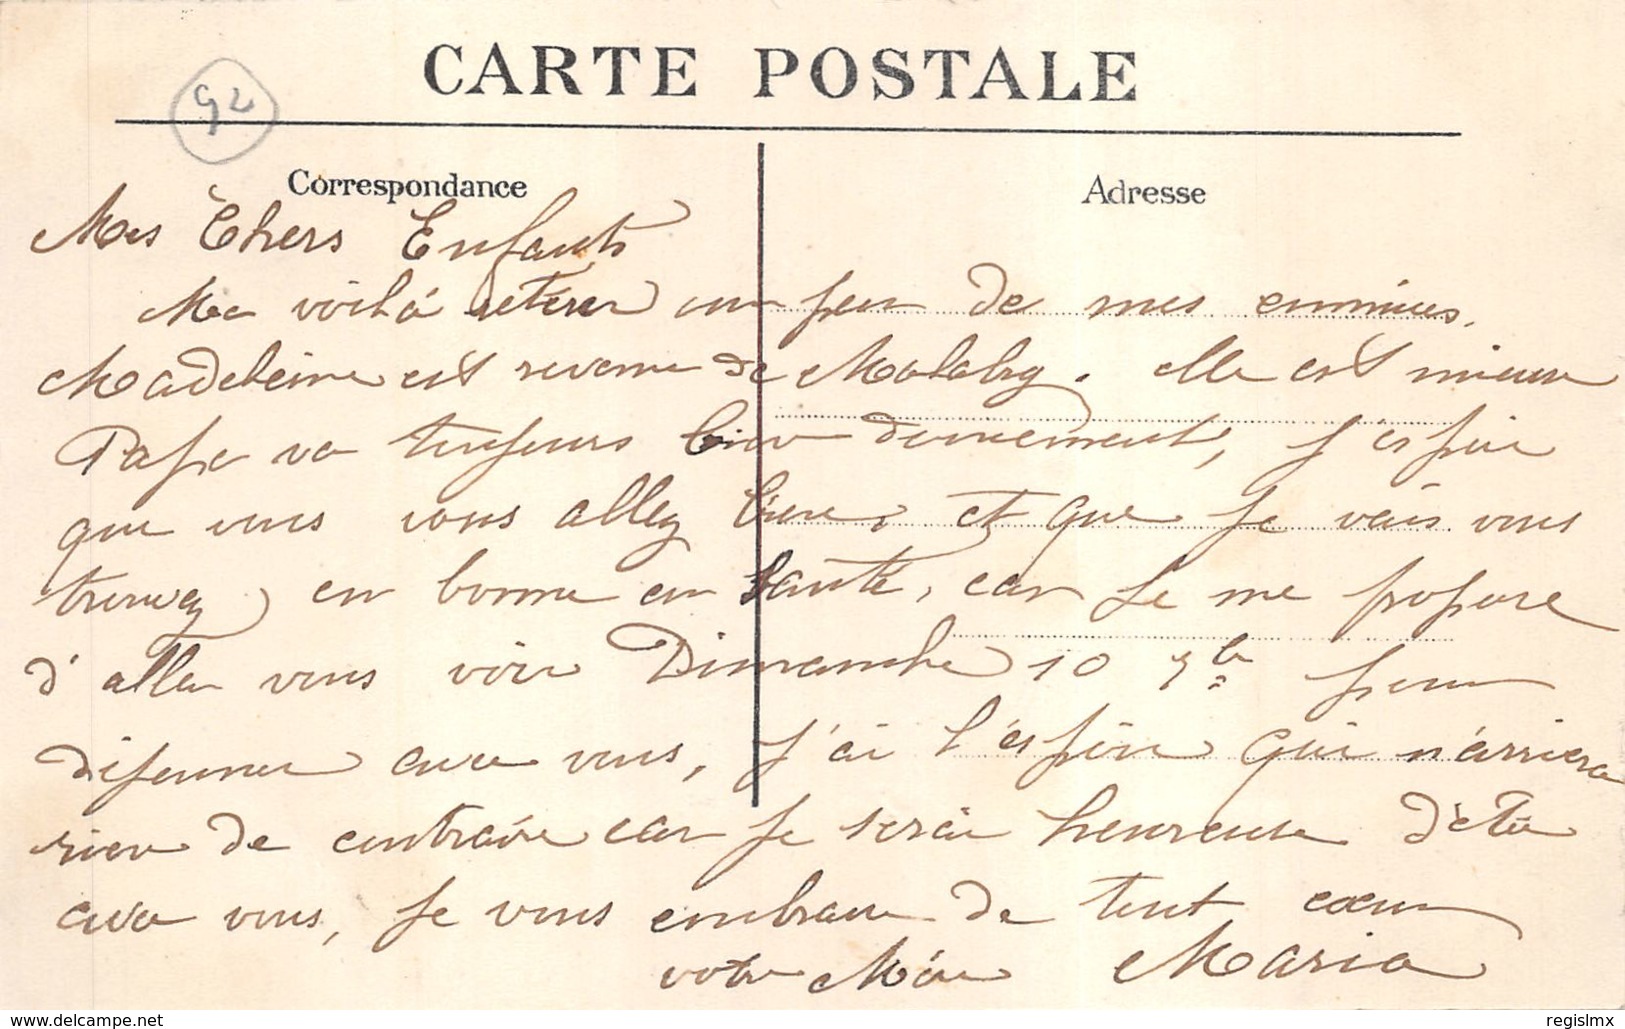 CARTE POSTALE
92
Correspondance
Adresse
Mes Chers Enfants
Me voilà retirer un peu de mes ennuies.
Madeleine est revenue de Malabry. elle est mieux
Papa va toujours bien doucement, j'espère
que vous vous allez bien, et que je vais vous
trouvez en bonne en santé, car je me propose
d'aller vous voir Dimanche 10 7bre pour
déjeuner avec vous, j'ai l'espoir qui n'arrivera
rien de contraire car je serai heureuse d'être
avec vous, je vous embrasse de tout cœur
votre Mère Maria
www.delcampe.net
regislmx